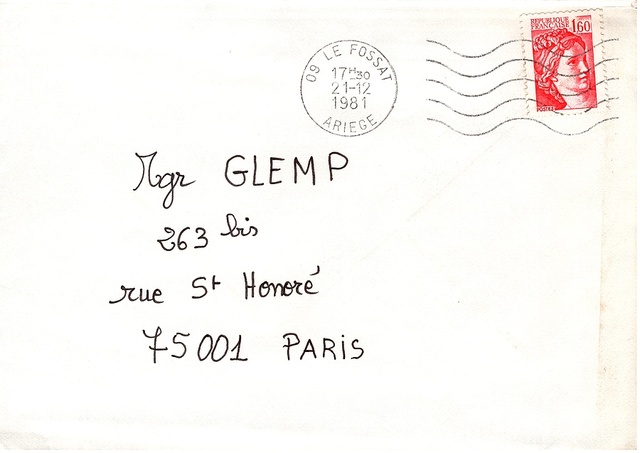 REPUBLIQUE
FRANCAISE
1,60
POSTES
09 LE FOSSAT
17H30
21-12
1981
ARIEGE
Mgr GLEMP
263 bis
rue St Honoré
75001 PARIS